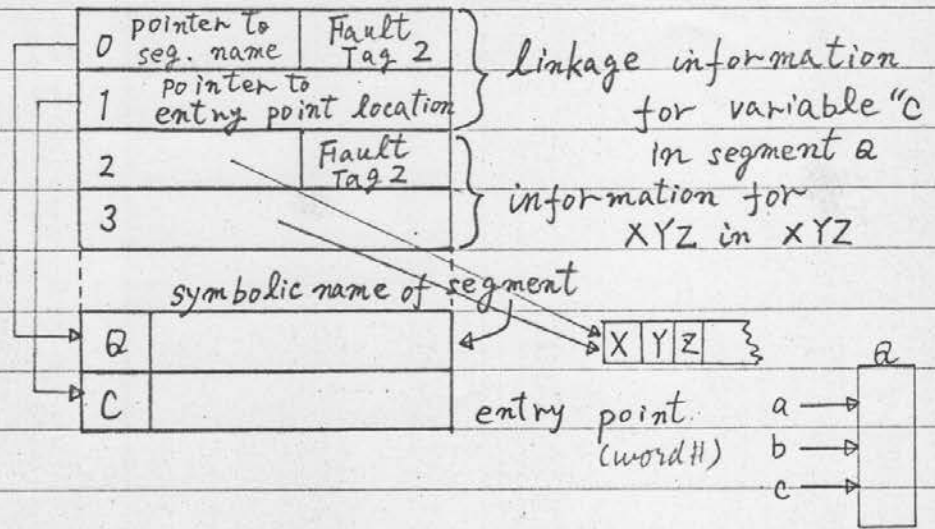 0 pointer to seg. name Fault Tag 2
1 pointer to entry point location
linkage information
for variable "C
in segment Q
2 Fault Tag 2
3
information for
XYZ in XYZ
symbolic name of segment
Q
C
X Y Z
entry point
(word#)
Q
a
b
c